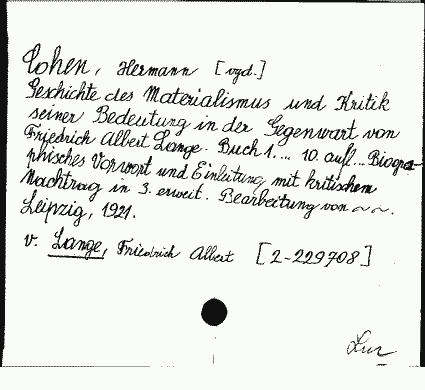 Cohen, Hermann [vyd.]
Geschichte des Materialismus und Kritik
seiner Bedeutung in der Gegenwart von
Friedrich Albert Lange. Buch 1. ... 10. aufl... Biogra-
phisches Vorwort und Einleitung mit kritischem
Nachtrag in 3. erweit. Bearbeitung von ~ ~.
Leipzig, 1921.
v. Lange, Friedrich Albert [2-229708]